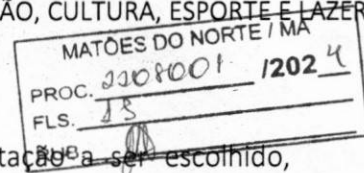 ÃO, CULTURA, ESPORTE E LAZER
MATÕES DO NORTE / MA
PROC. 2208001 /2024
FLS.
RUB.
tação a ser escolhido,